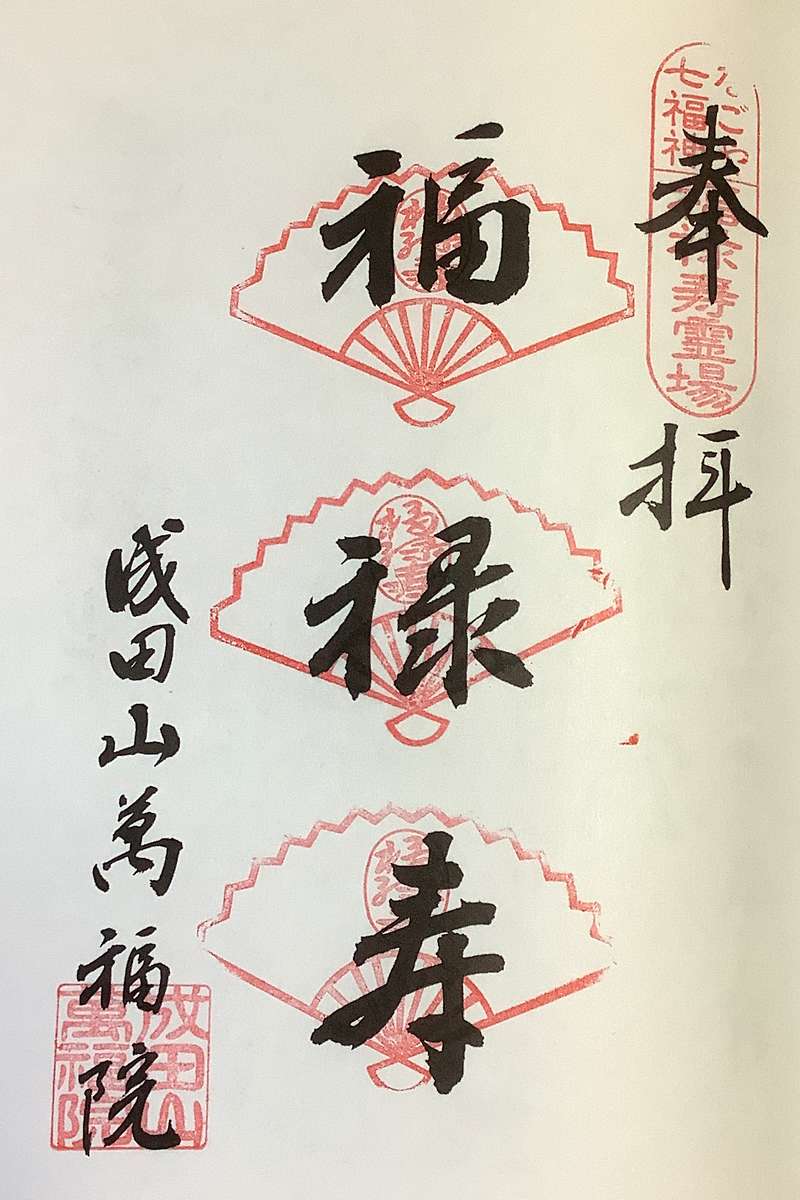 奉拝
なごや七福神
福禄寿霊場
福
禄
寿
成田山萬福院
成田山萬福院